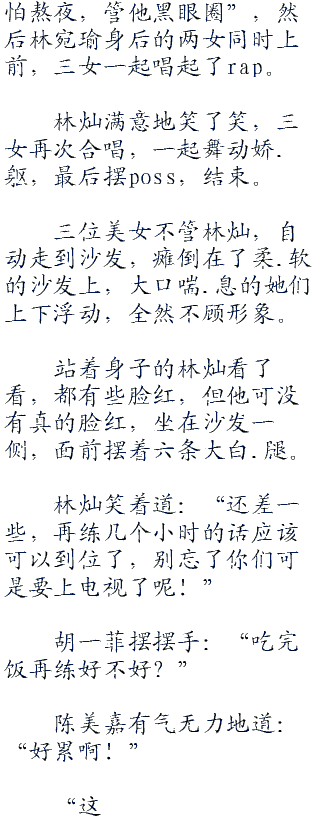 怕熬夜，管他黑眼圈”，然
后林宛瑜身后的两女同时上
前，三女一起唱起了rap。
林灿满意地笑了笑，三
女再次合唱，一起舞动娇.
躯，最后摆poss，结束。
三位美女不管林灿，自
动走到沙发，瘫倒在了柔.软
的沙发上，大口喘.息的她们
上下浮动，全然不顾形象。
站着身子的林灿看了
看，都有些脸红，但他可没
有真的脸红，坐在沙发一
侧，面前摆着六条大白.腿。
林灿笑着道：“还差一
些，再练几个小时的话应该
可以到位了，别忘了你们可
是要上电视了呢！”
胡一菲摆摆手：“吃完
饭再练好不好？”
陈美嘉有气无力地道：
“好累啊！”
“这